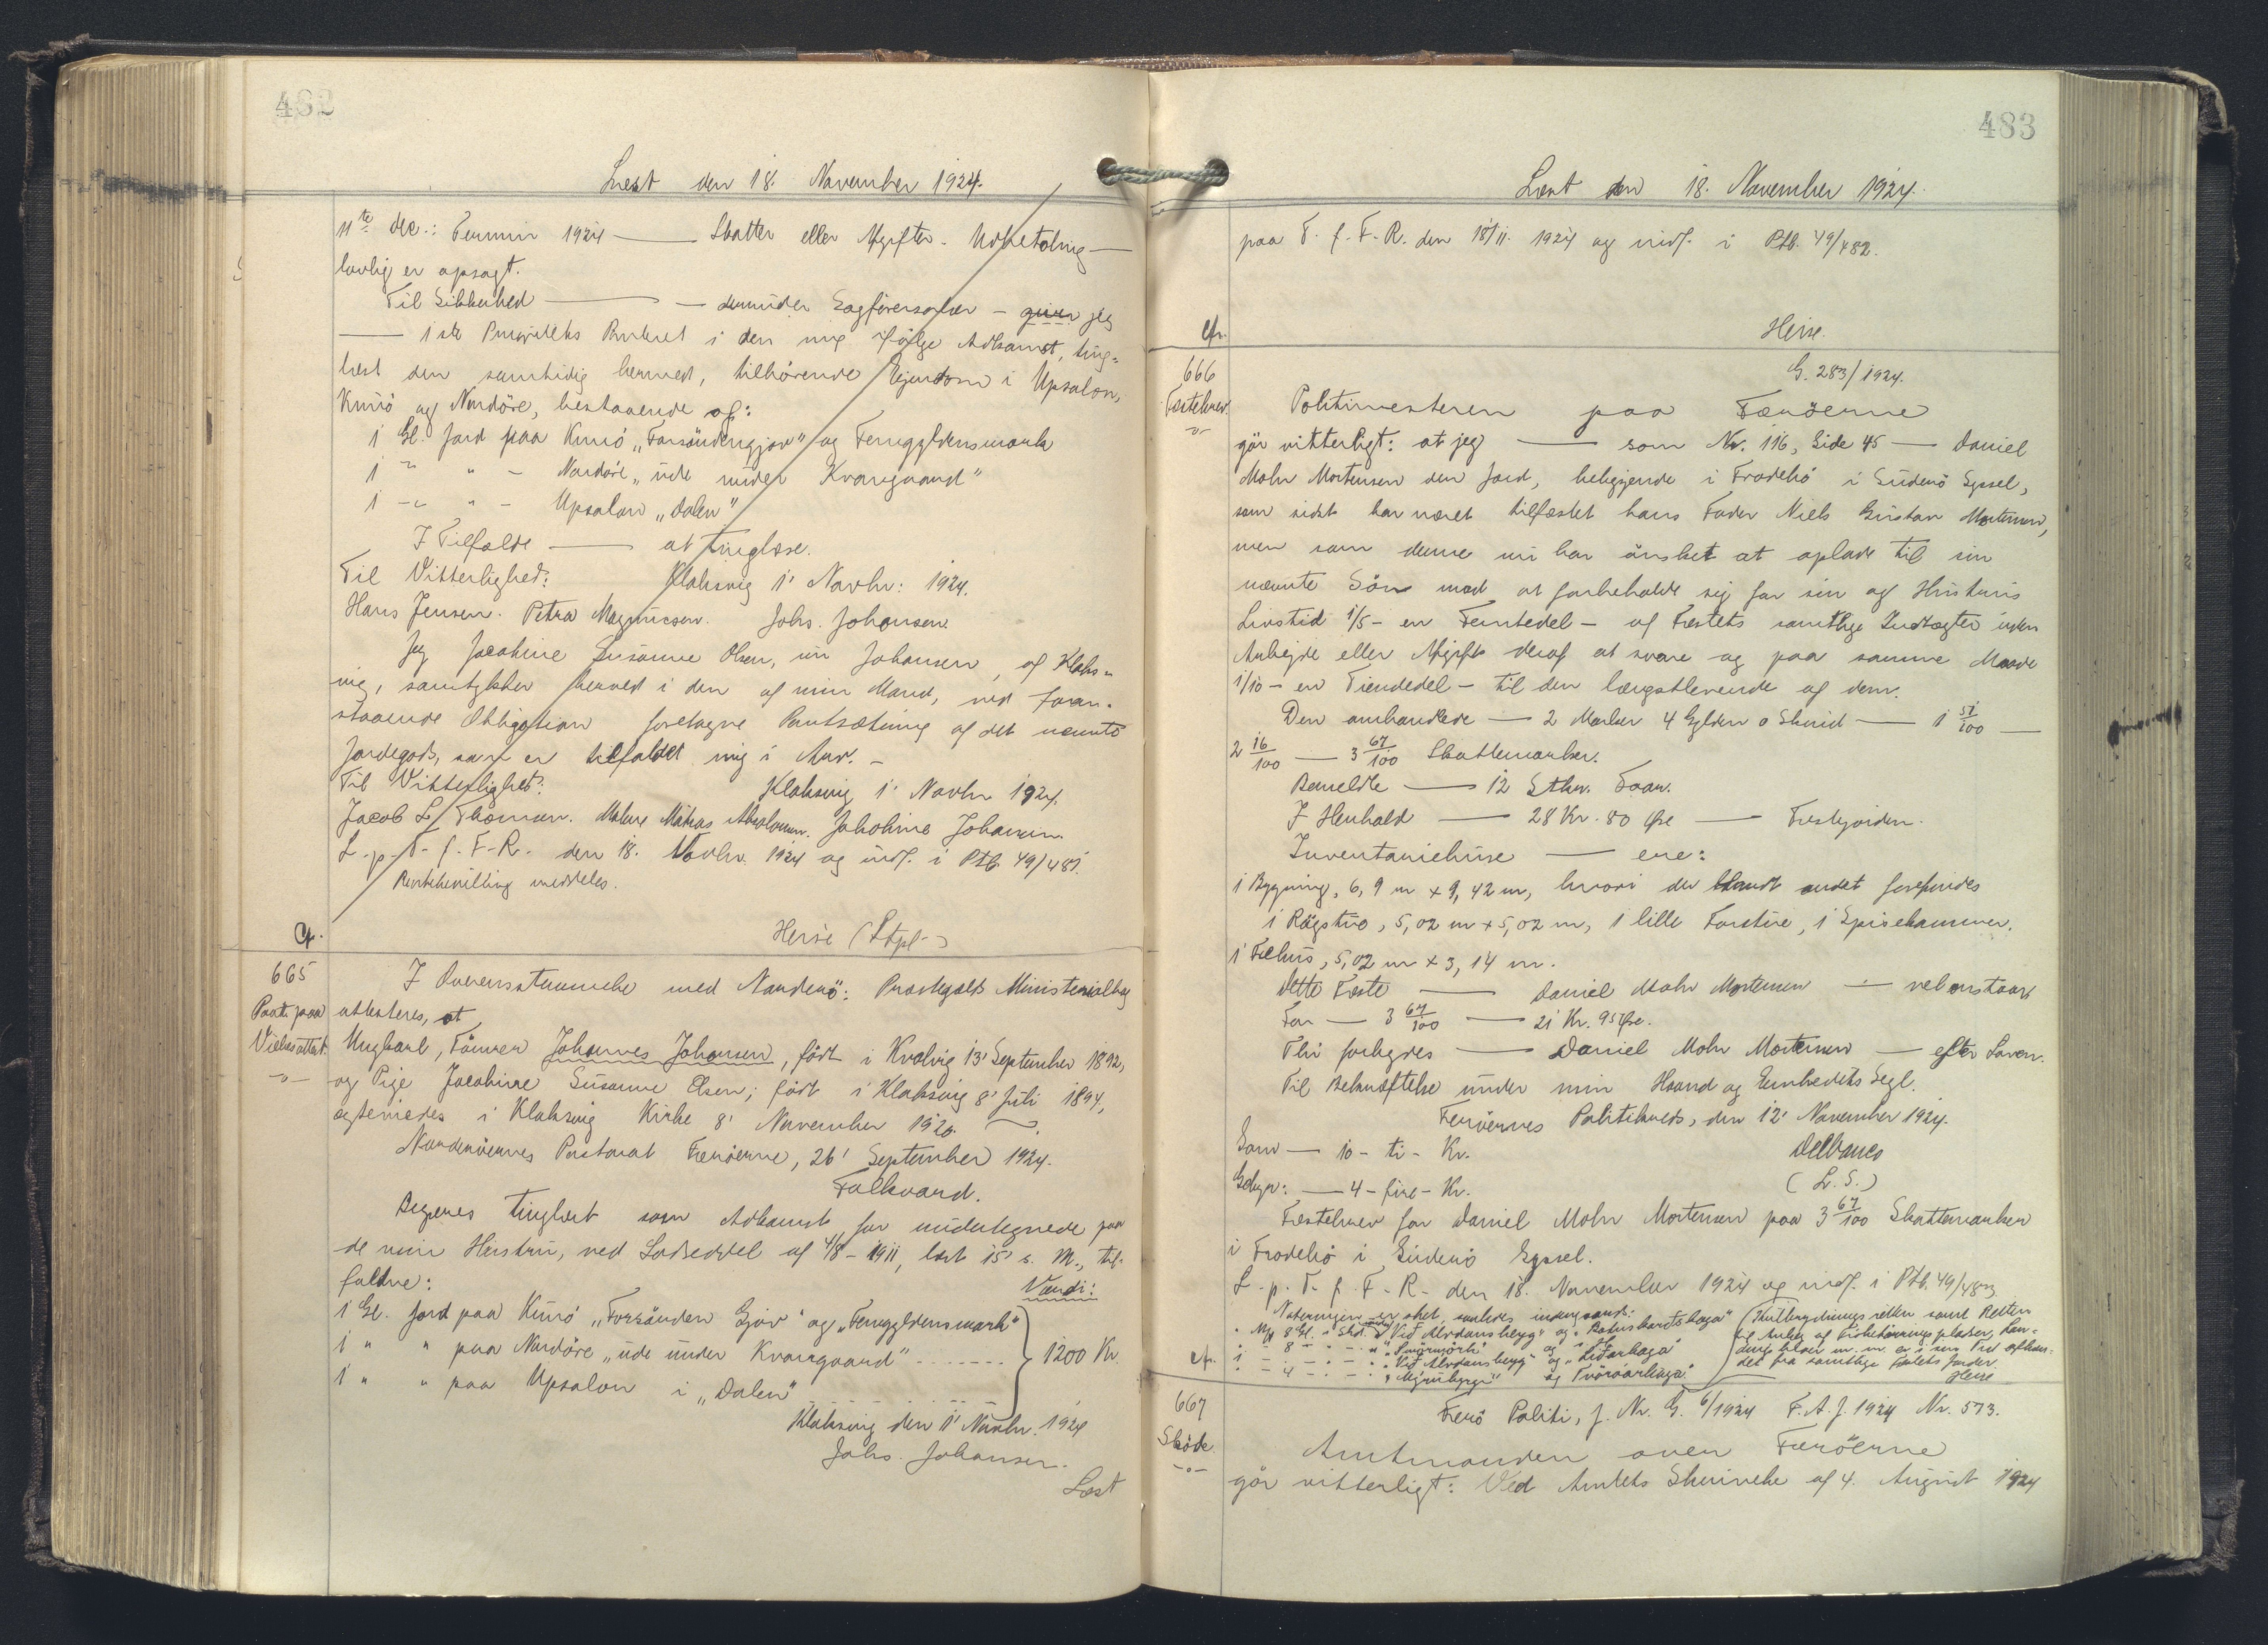 482
Læst den 18. November 1924.
11te Dec.: Termin 1924 — Skatter eller Afgifter. Udbetaling —
lovlig er opsagt.
Til Sikkerhed — — derunder Sagførersalær — giver jeg
— 1ste Prioritets Panteret i den mig ifølge Adkomst, ting-
læst den samtidig hermed, tilhörende Ejendom i Upsalon,
Kunö og Nordöre, bestaaende af:
1 Gl. Jord paa Kunö „Forsöndengjov" og Femgyldensmark
1 " " - Nordöre „ude under Kvanngaard"
1 - " - Upsalon „Dalen"
I Tilfælde — at tinglæse.
Til Vitterlighed: Klaksvig 1' Novbr: 1924.
Hans Jensen. Petra Magnusen. Johs. Johansen.
Jeg Jacobine Susanne Olsen, nu Johansen, af Klaks-
vig, samtykker herved i den af min Mand, ved foran-
staaende Obligation foretagne Pantsætning af det nævnte
Jordegods, som er tilfaldet mig i Arv. -
Til Vitterlighed: Klaksvig 1' Novbr 1924.
Jacob L. Thomsen. Malene Matras Absalonsen. Jakobine Johansen.
L. p. T. f. F. R. den 18. Novbr. 1924 og indf. i Ptb. 49/481.
Rentebevilling meddeles.
Heise (Stpl.)
Cfr.
665
Paat. paa
Vielsesattest.
-"-
I Overensstemmelse med Norderö: Præstegjælds Ministerialbog
attesteres, at
Ungkarl, Tömrer Johannes Johansen, födt i Kvalvig 13' September 1892,
og Pige Jacobine Susanne Olsen, födt i Klaksvig 8' Juli 1894,
ægteviedes i Klaksvig Kirke 8' November 1920.
Norderöernes Pastorat Færöerne, 26' September 1924.
Falkvard.
Begæres tinglæst som Adkomst for undertegnede paa
de min Hustru, ved Lodseddel af 4/8 - 1911, læst 15' s. M., til-
faldne: Værdi:
1 Gl. Jord paa Kunö „Forsönden Gjov" og „Femgyldensmark"
1 " " paa Nordöre „ude under Kvanngaard" . . . . . . 1200 Kr.
1 " " paa Upsalon i „Dalen" . . . . . . .
Klaksvig den 1' Novbr. 1924
Johs. Johansen.
Læst
483
Læst den 18. November 1924.
paa T. f. F. R. den 18/11. 1924 og indf. i Ptb. 49/482.
Heise.
Cfr.
666
Fæstebrev
-"-
G. 283/1924.
Politimesteren paa Færöerne
gör vitterligt: at jeg — som Nr. 116, Side 45 — Daniel
Mohr Mortensen den Jord, beliggende i Frodebö i Suderö Syssel,
som sidst har været tilfæstet hans Fader Niels Gustav Mortensen,
men som denne nu har önsket at oplade til sin
nævnte Sön mod at forbeholde sig for sin og Hustrus
Livstid 1/5 - en Femtedel - af Fæstets samtlige Indtægter uden
Arbejde eller Afgift deraf at svare og paa samme Maade
1/10 - en Tiendedel - til den længstlevende af dem.
Den omhandlede — 2 Marker 4 Gylden 0 Skind — 1 51/100 —
2 16/100 — 3 67/100 Skattemarker.
Bemeldte — 12 Stkr. Faar.
I Henhold — 28 Kr. 80 Øre — Fæstejorden.
Inventariehuse — ere:
1 Bygning, 6,9 m x 9,42 m, hvori der blandt andet forefindes
1 Rögstue, 5,02 m x 5,02 m, 1 lille Forstue, 1 Spisekammer.
1 Fæhus, 5,02 m x 3,14 m.
Dette Fæste — Daniel Mohr Mortensen — velforstaaet
For — 3 67/100 — 21 Kr. 95 Øre.
Thi forbydes — Daniel Mohr Mortensen — efter Loven.
Til Bekræftelse under min Haand og Embedets Segl.
Færöernes Politikreds, den 12' November 1924.
Sow — 10 - ti - Kr. Delbanco
Gebyr: — 4 - fire - Kr. (L. S.)
Fæstebrev for Daniel Mohr Mortensen paa 3 67/100 Skattemarker
i Frodebö i Suderö Syssel.
L. p. T. f. F. R. den 18. November 1924 og indf. i Ptb. 49/483
Cfr.
Heise
667
Sköde.
-"-
Færö Politi, J. Nr. G. 6/1924 F. A. J. 1924 Nr. 573.
Amtmanden over Færöerne
gör vitterligt: Ved Amtets Skrivelse af 4. August 1924